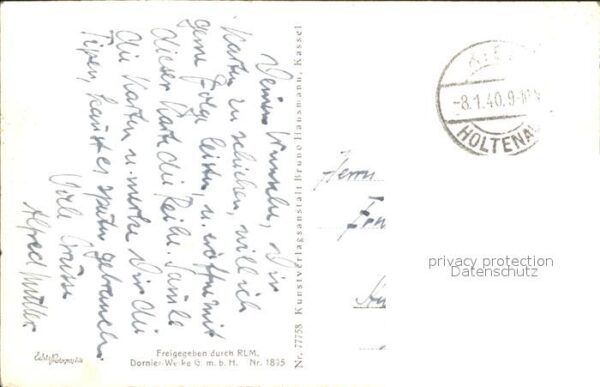 Deinem Wunsche, Dir
Karten zu schicken, will ich
gerne Folge leisten, u. eröffne mit
dieser Karte die Reihe. Samle
die Karten u. merke Dir die
Typen, kannst es später gebrauchen.
Viele Grüsse
Alfred Müller
Nr. 77758 Kunstverlagsanstalt Bruno Hansmann, Kassel
Echte Photographie
Freigegeben durch RLM.
Dornier-Werke G. m. b. H. Nr. 1895
KIEL
-8.1.40.9-
HOLTENAU
Herrn
privacy protection
Datenschutz